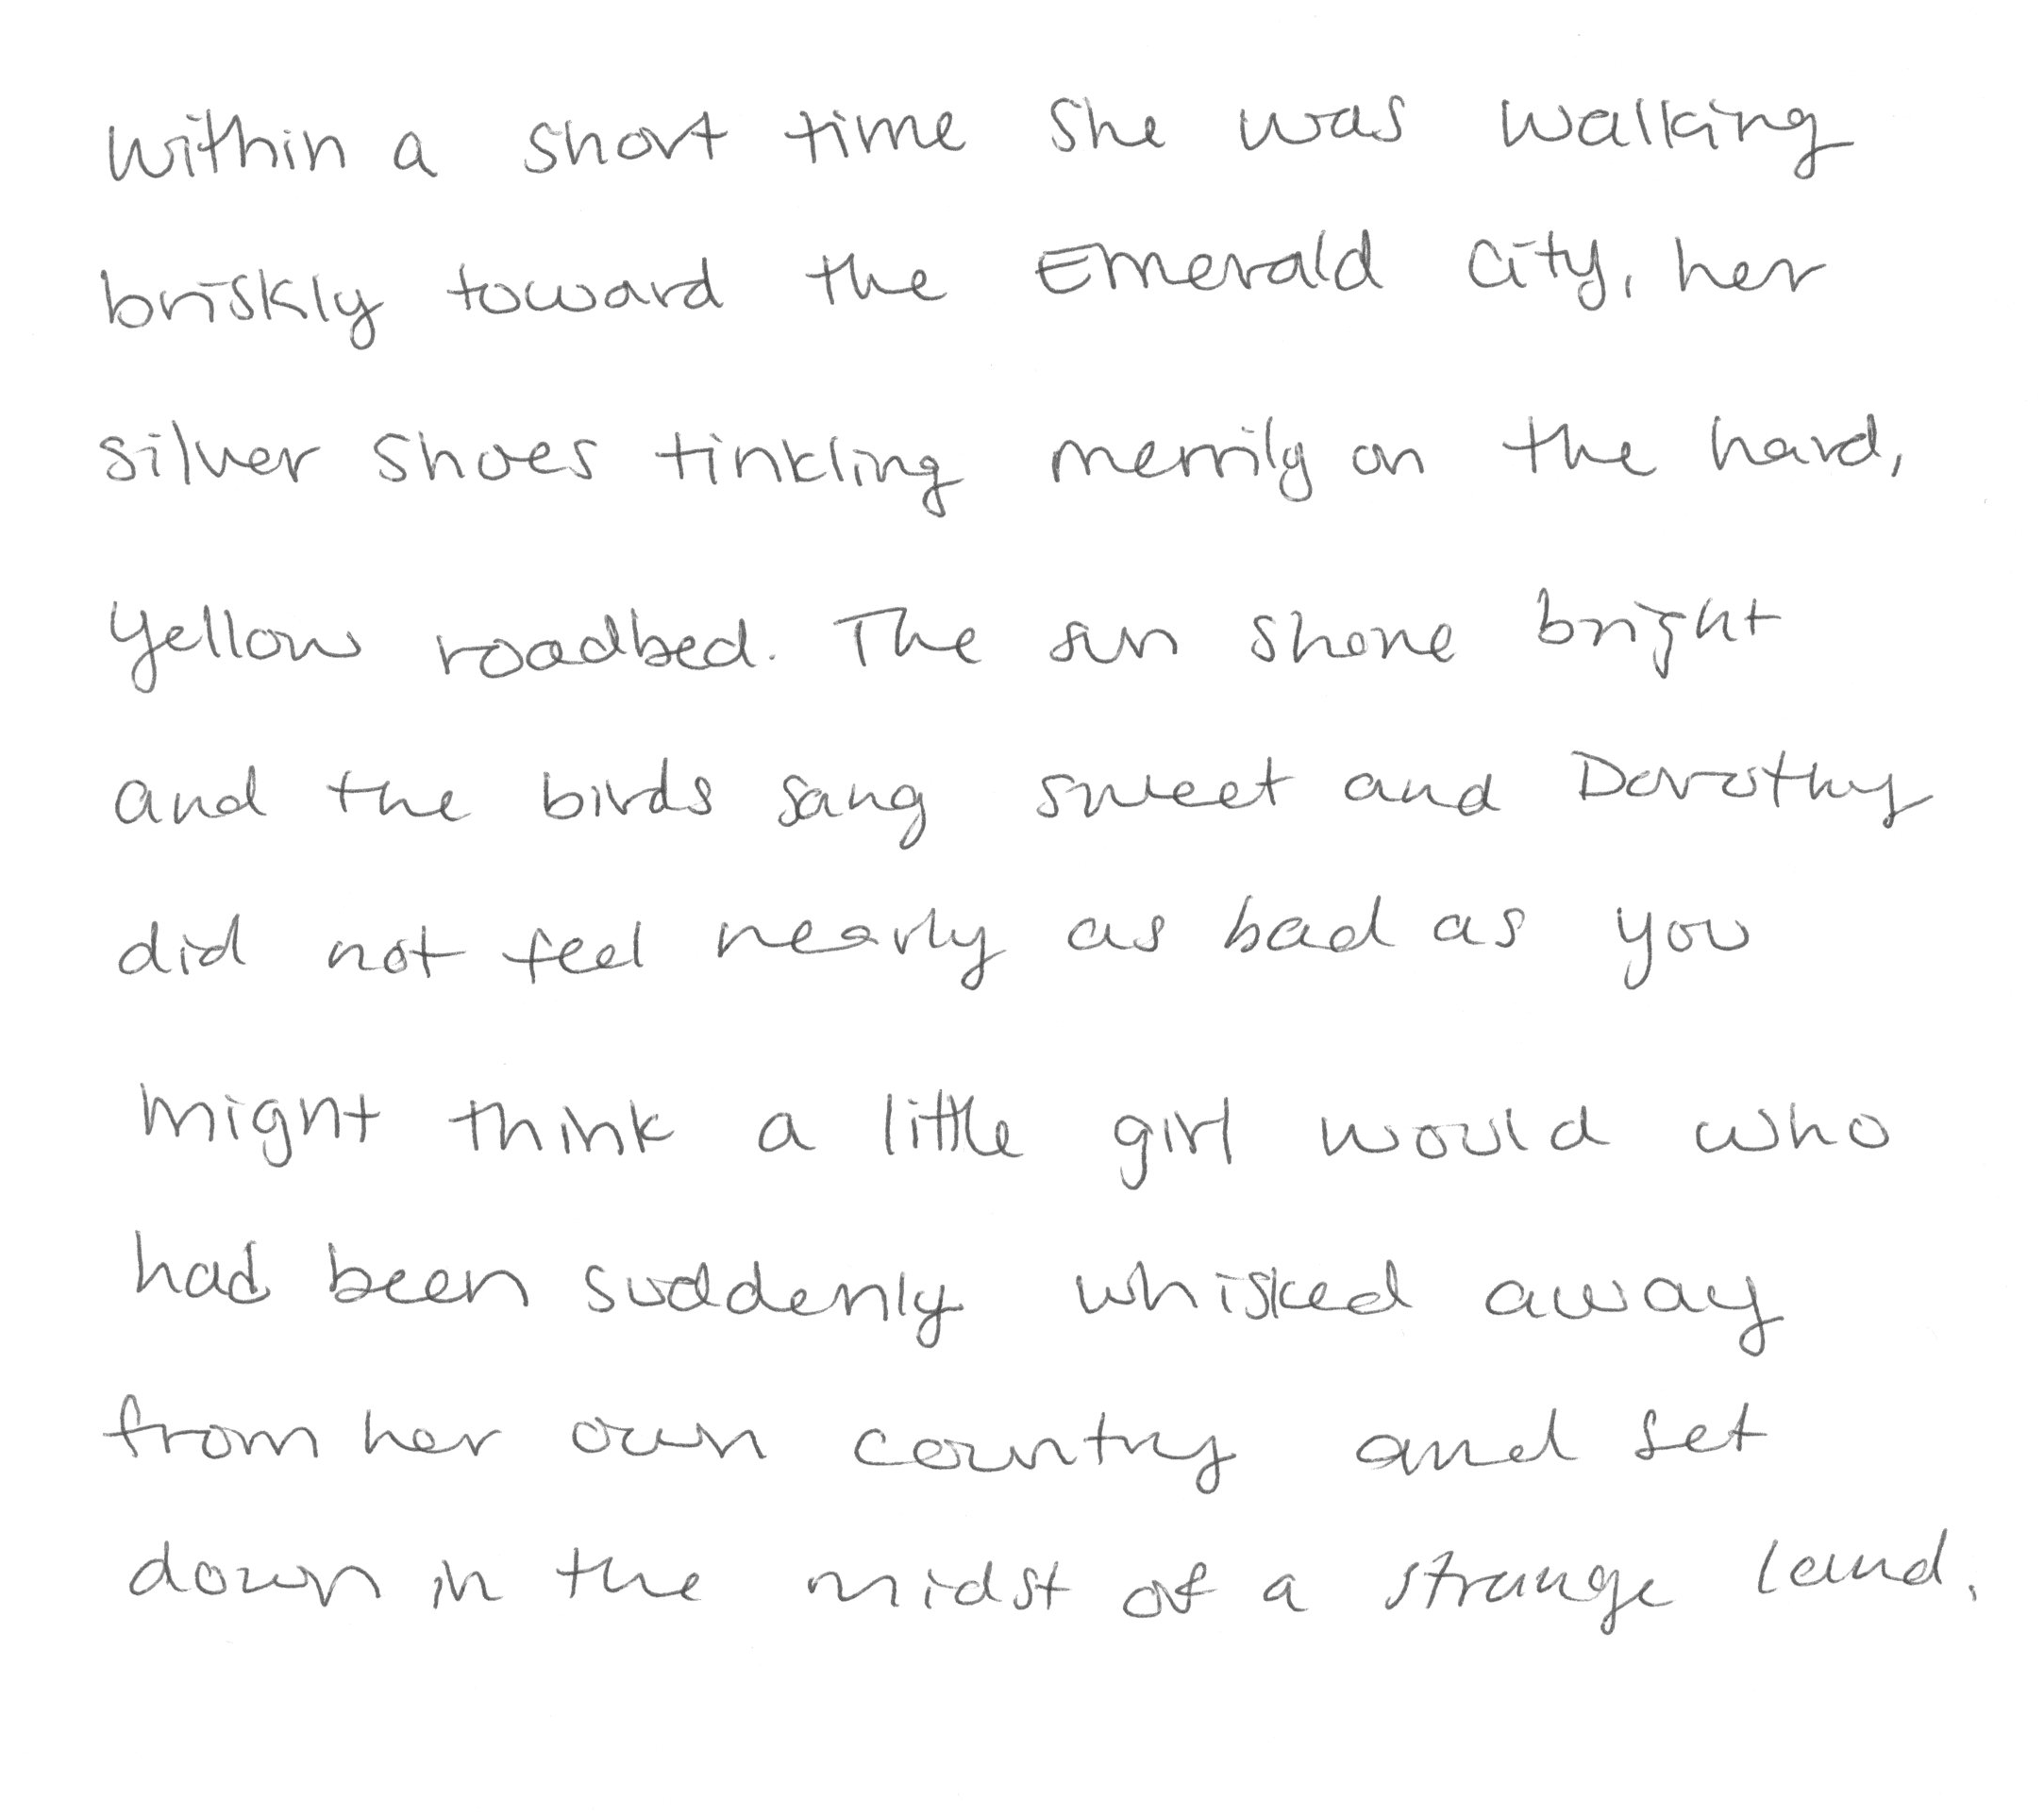 Within a short time she was walking
briskly toward the Emerald City, her
silver shoes tinkling merrily on the hard,
yellow roadbed. The sun shone bright
and the birds sang sweet and Dorothy
did not feel nearly as bad as you
might think a little girl would who
had been suddenly whisked away
from her own country and set
down in the midst of a strange land.